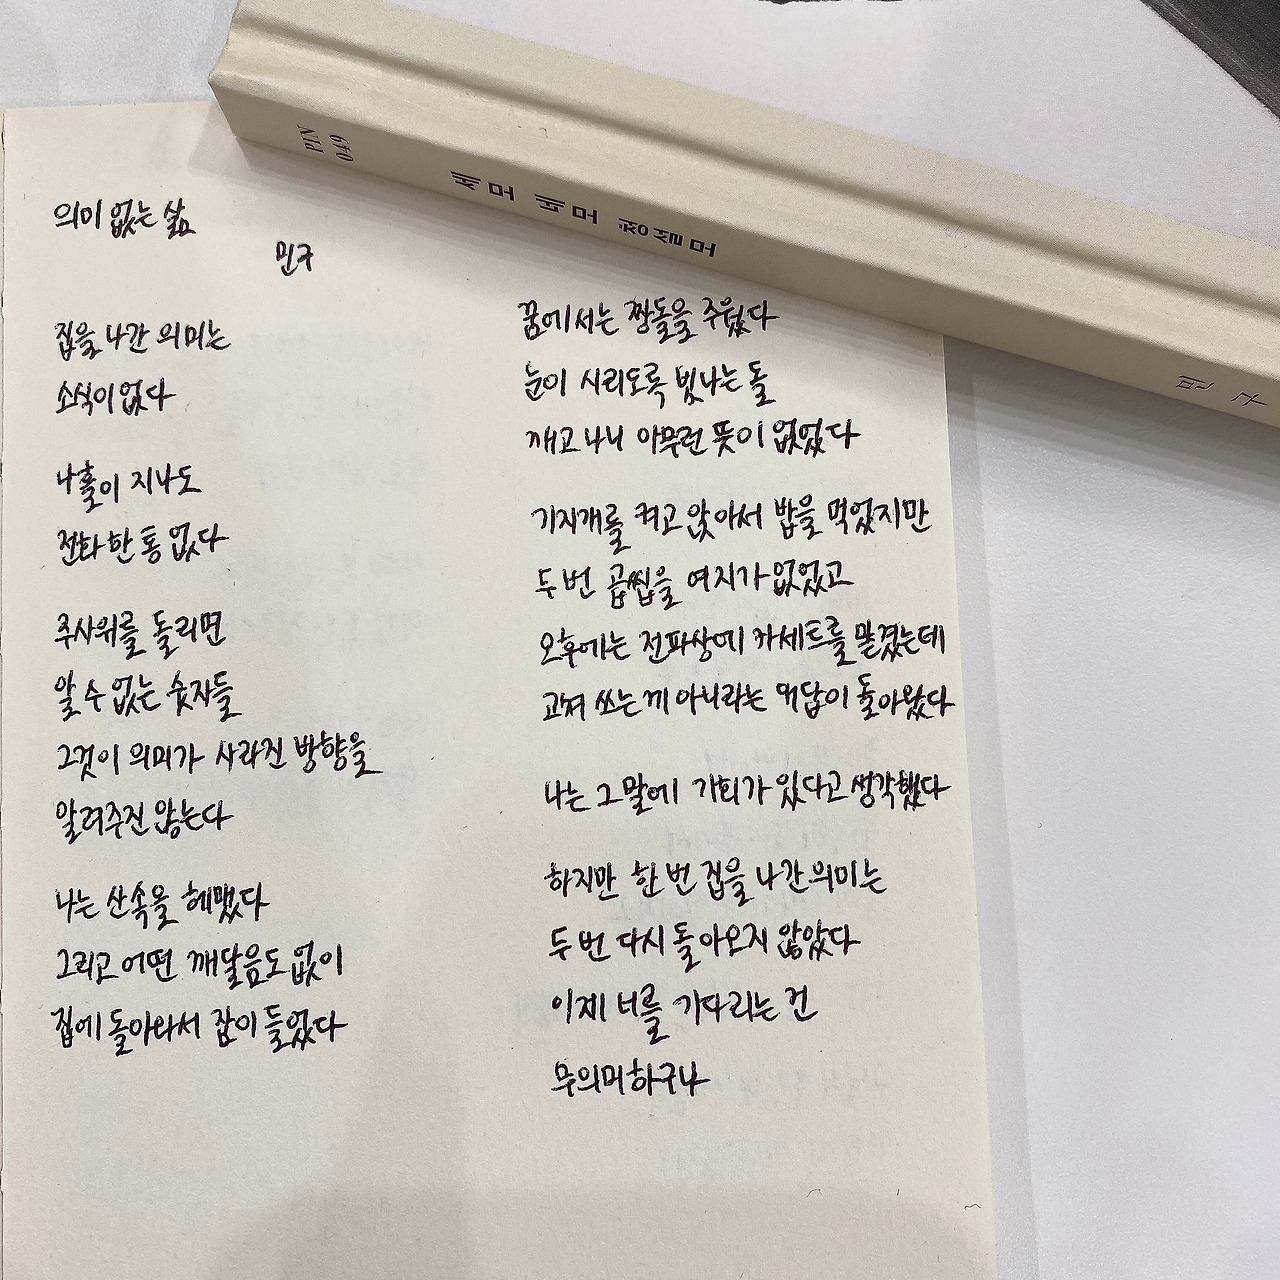 PIN
049
세모 네모 청설모
민구
의미 없는 삶
민구
집을 나간 의미는
소식이 없다
나흘이 지나도
전화 한 통 없다
주사위를 돌리면
알 수 없는 숫자들
그것이 의미가 사라진 방향을
알려주진 않는다
나는 산속을 헤맸다
그리고 어떤 깨달음도 없이
집에 돌아와서 잠이 들었다
꿈에서는 짱돌을 주웠다
눈이 시리도록 빛나는 돌
깨고 나니 아무런 뜻이 없었다
기지개를 켜고 앉아서 밥을 먹었지만
두 번 곱씹을 여지가 없었고
오후에는 전파상에 카세트를 맡겼는데
고쳐 쓰는 게 아니라는 대답이 돌아왔다
나는 그 말에 가치가 있다고 생각했다
하지만 한 번 집을 나간 의미는
두 번 다시 돌아오지 않았다
이제 너를 기다리는 건
무의미하구나